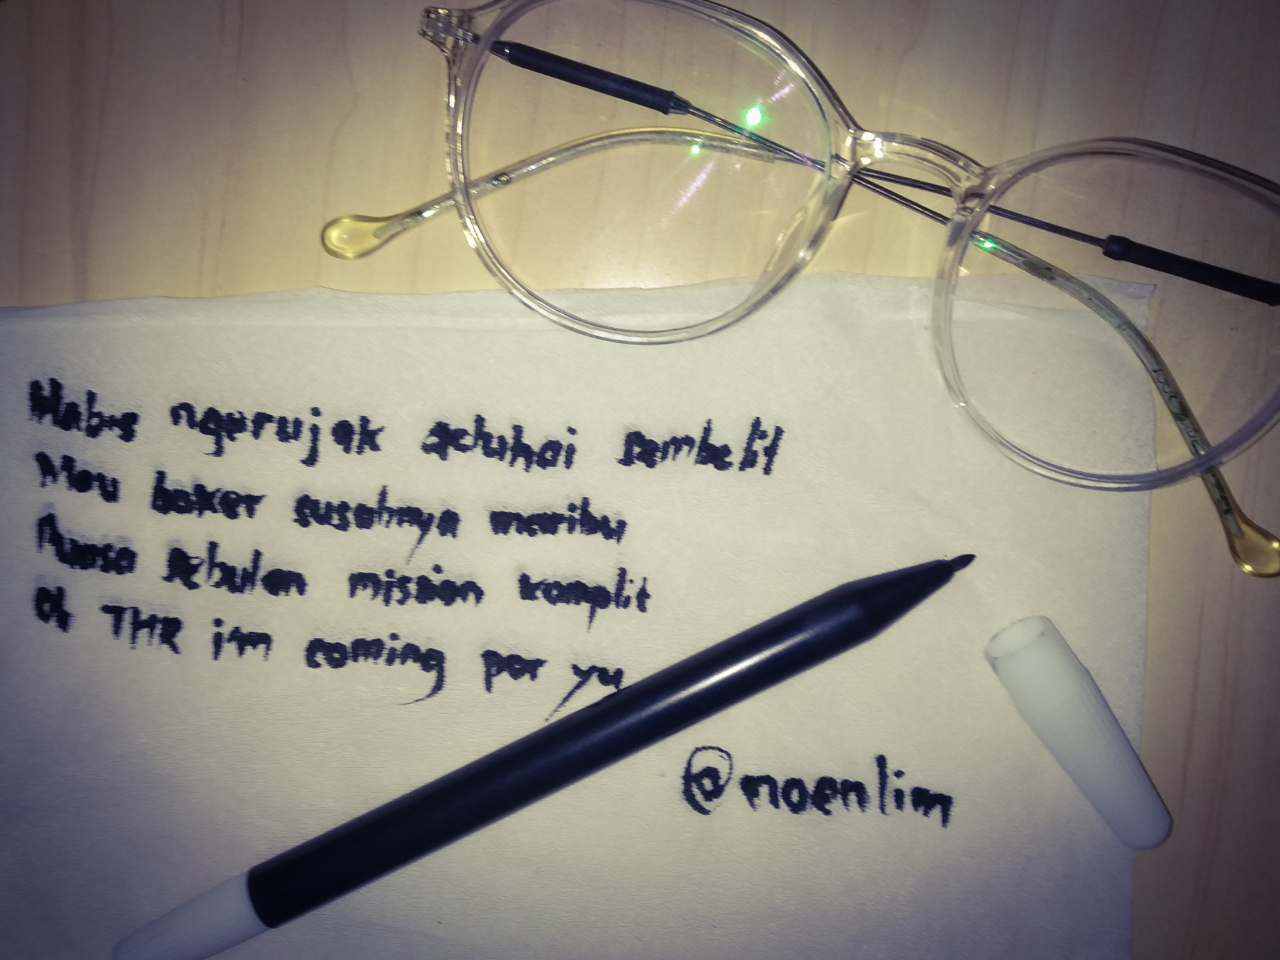 Habis ngerujak aduhai sembelit
Mau boker susahnya meribu
Puasa sebulan mission komplit
Oh THR i'm coming por yu
@noenlim